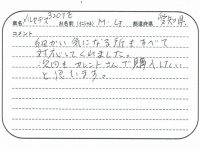 メルセデス 300TE お名前(イニシャル) M.G 都道府県 愛知県
コメント
細かい気になる所もすべて
対応してくれました。
次回もカレントさんで購入したい
と思います。